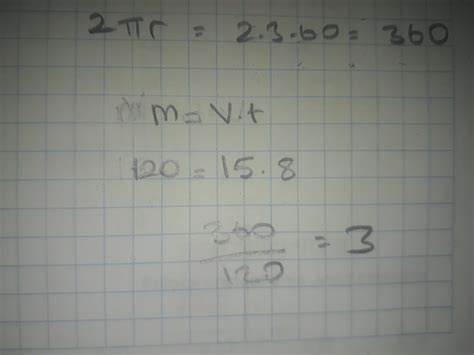 2πr = 2.3.60 = 360
m = V.t
120 = 15.8
360/120 = 3